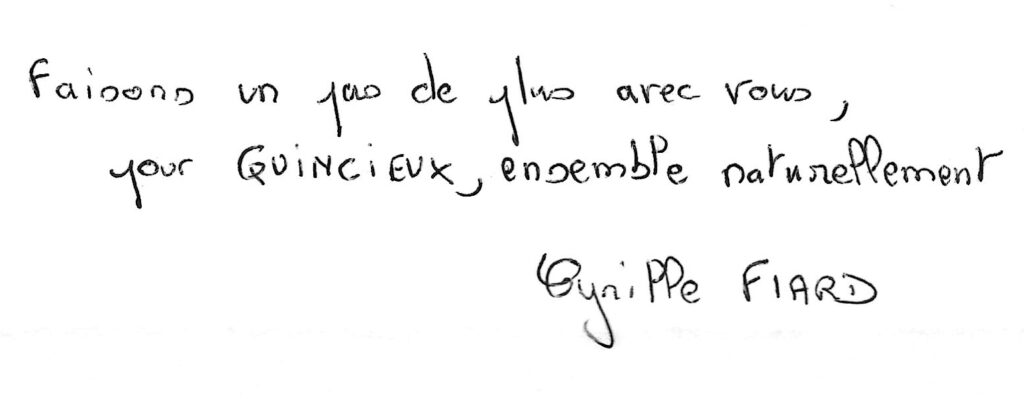 Faisons un pas de plus avec vous,
pour QUINCIEUX, ensemble naturellement
Cyrille FIARD